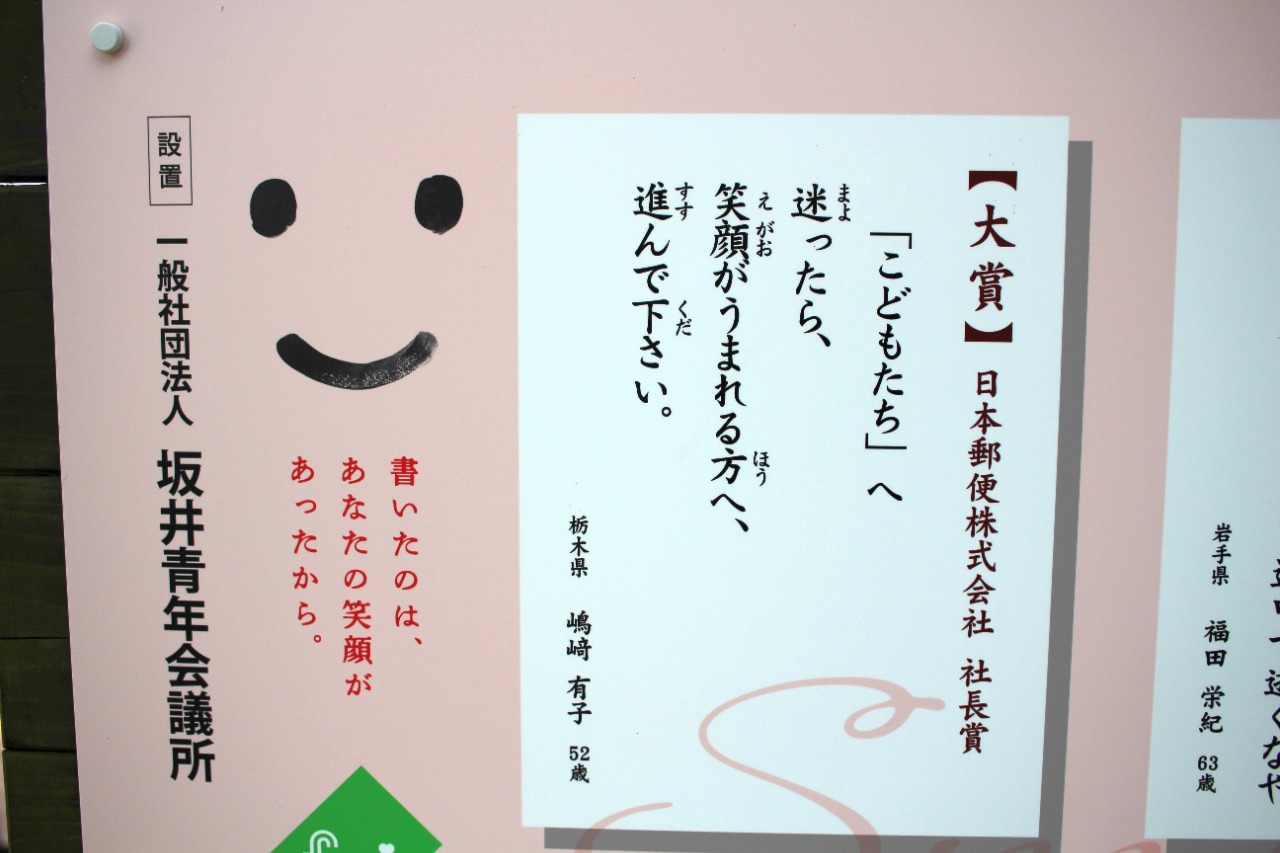 【大賞】日本郵便株式会社 社長賞
「こどもたち」へ
迷ったら、
まよ
笑顔がうまれる方へ、
えがお
ほう
進んで下さい。
すす
くだ
栃木県 嶋﨑 有子 52歳
書いたのは、
あなたの笑顔が
あったから。
設置 一般社団法人 坂井青年会議所
岩手県 福田 栄紀 63歳